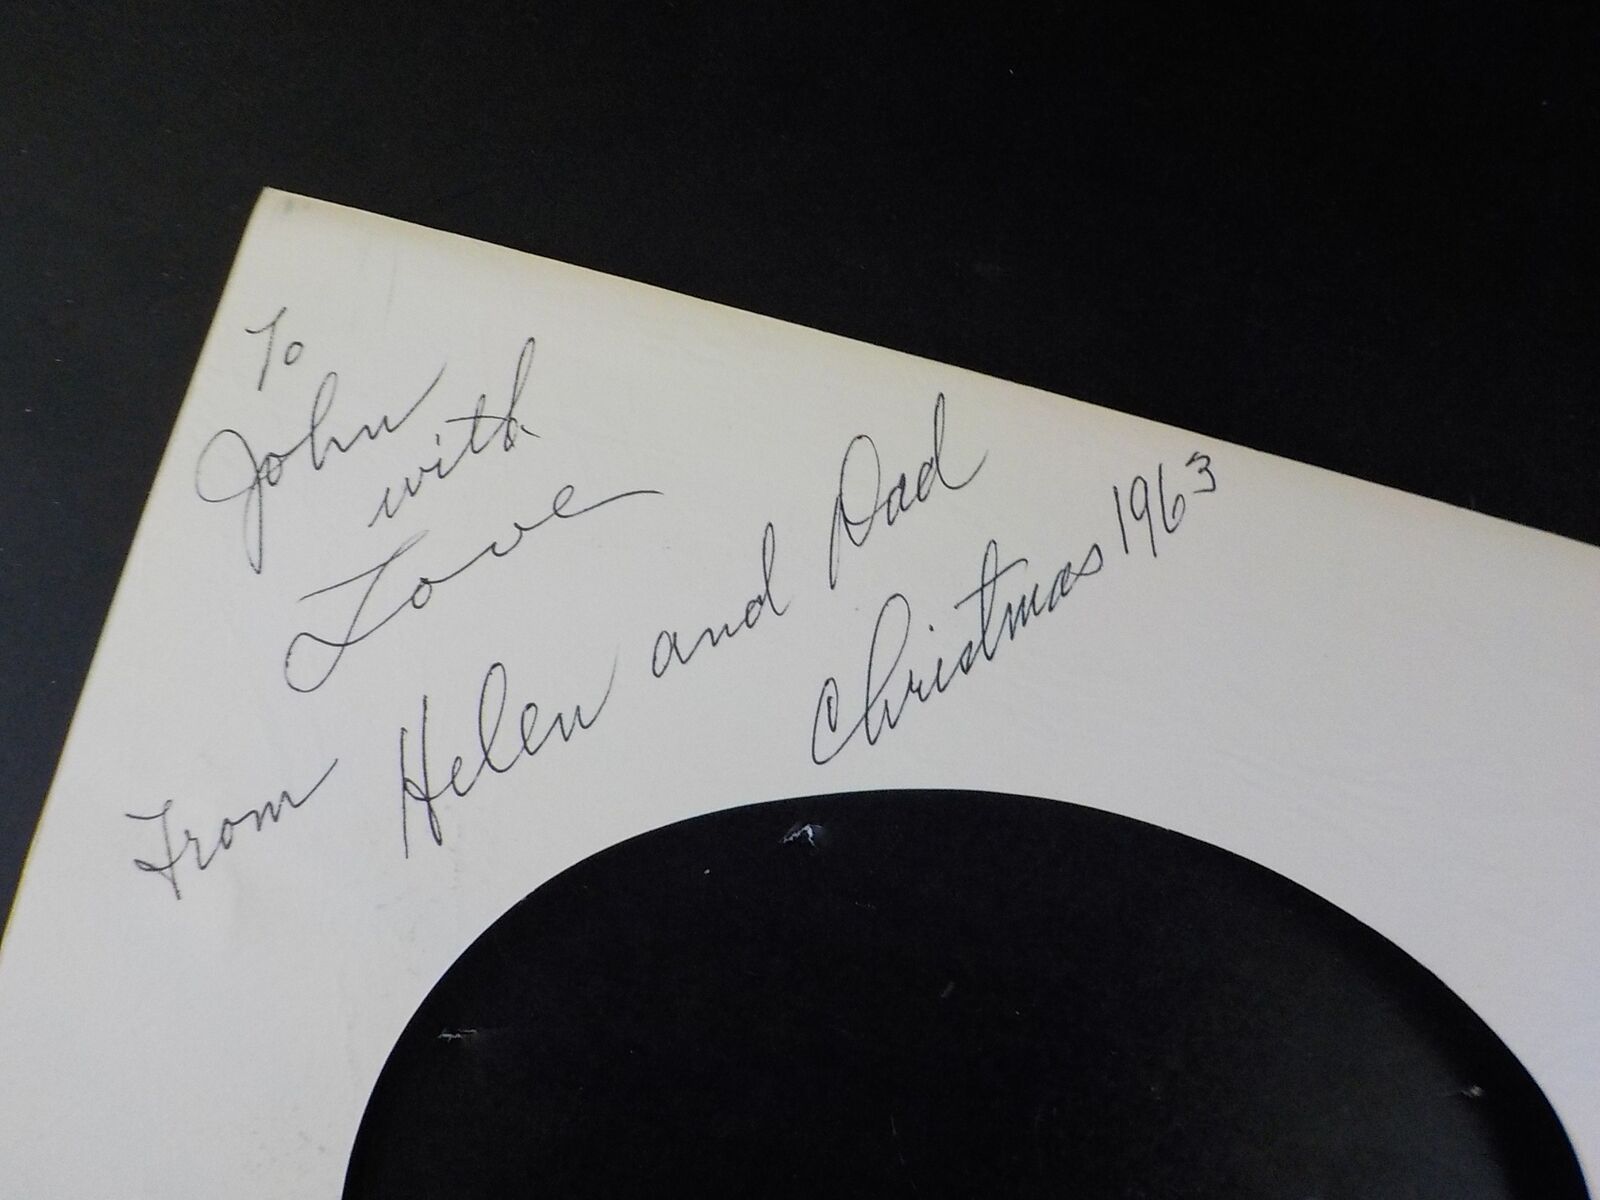 To
John
with
Love
From Helen and Dad
Christmas 1963